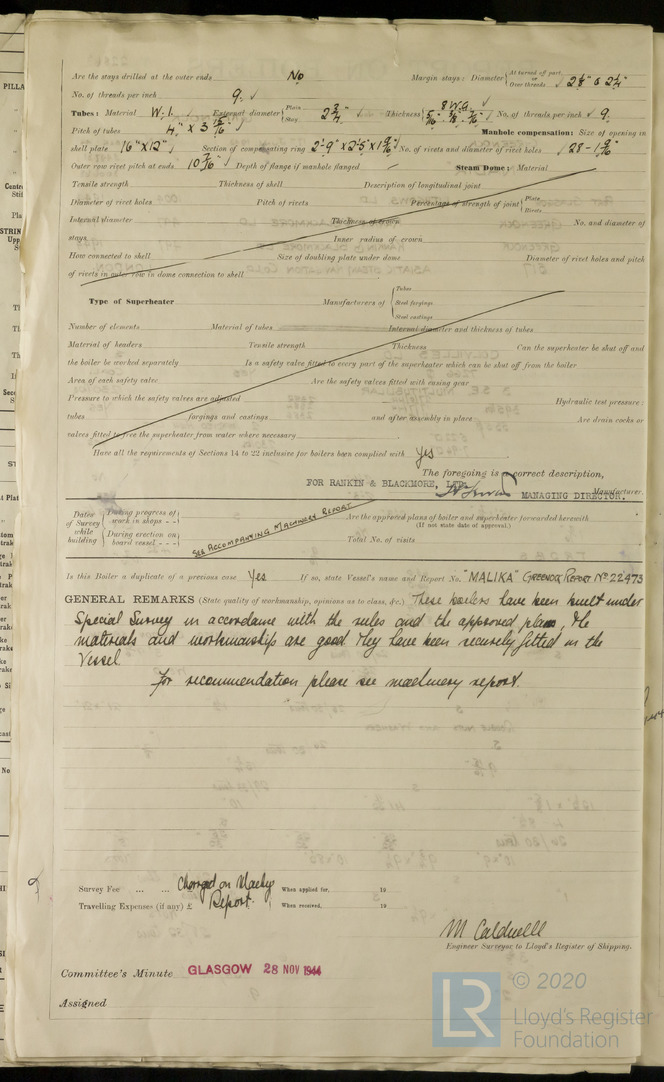 Are the stays drilled at the outer ends No Margin stays: Diameter { At turned off part, or Over threads ✓ 2 1/8" & 2 1/4"
No. of threads per inch 9. ✓
Tubes: Material W.I. External diameter { Plain Stay 2 3/4" ✓ Thickness { 8 W.G. ✓ 5/16" 3/8" 7/16" ✓ No. of threads per inch ✓ 9.
Pitch of tubes 4" x 3 15/16" ✓ Manhole compensation: Size of opening in
shell plate 16" x 12" ✓ Section of compensating ring No. of rivets and diameter of rivet holes ✓ 28 -
Outer row rivet pitch at ends 10 7/16" ✓ Depth of flange if manhole flanged — Steam Dome: Material
Tensile strength Thickness of shell Description of longitudinal joint
Diameter of rivet holes Pitch of rivets Percentage of strength of joint { Plate Rivets
Internal diameter Thickness of crown No. and diameter of
stays Inner radius of crown
How connected to shell Size of doubling plate under dome Diameter of rivet holes and pitch
of rivets in outer row in dome connection to shell
Type of Superheater Manufacturers of { Tubes Steel forgings Steel castings
Number of elements Material of tubes Internal diameter and thickness of tubes
Material of headers Tensile strength Thickness Can the superheater be shut off and
the boiler be worked separately Is a safety valve fitted to every part of the superheater which can be shut off from the boiler
Area of each safety valve Are the safety valves fitted with easing gear
Pressure to which the safety valves are adjusted Hydraulic test pressure:
tubes forgings and castings and after assembly in place Are drain cocks or
valves fitted to free the superheater from water where necessary
Have all the requirements of Sections 14 to 22 inclusive for boilers been complied with Yes
The foregoing is a correct description,
FOR RANKIN & BLACKMORE, LTD. MANAGING DIRECTOR. Manufacturer.
Dates of Survey while building { During progress of work in shops - - During erection on board vessel - - SEE ACCOMPANYING MACHINERY REPORT
Are the approved plans of boiler and superheater forwarded herewith
(If not state date of approval.)
Total No. of visits
Is this Boiler a duplicate of a previous case Yes If so, state Vessel's name and Report No. "MALIKA" GREENOCK REPORT No 22473
GENERAL REMARKS (State quality of workmanship, opinions as to class, &c.) These boilers have been built under
Special Survey in accordance with the rules and the approved plans, The
materials and workmanship are good They have been securely fitted in the
Vessel.
For recommendation please see machinery report.
Survey Fee ... ... £ Charged on Machy When applied for, 19
Travelling Expenses (if any) £ Report. When received, 19
M Caldwell
Engineer Surveyor to Lloyd's Register of Shipping.
Committee's Minute GLASGOW 28 NOV 1944
Assigned
© 2020
LR Lloyd's Register
Foundation